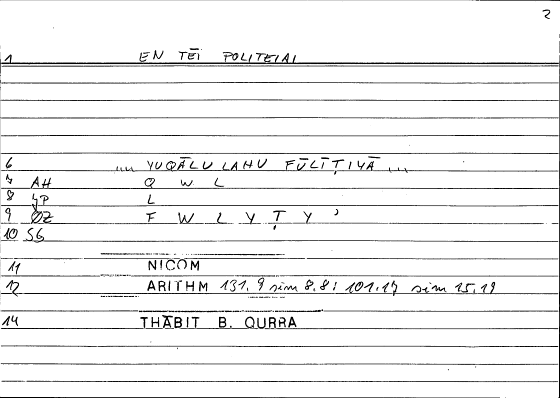 2
1 EN TĒI POLITEIAI
6 ,,,, YUQĀLU LAHU FŪLĪṬIYĀ ,,,
7 AH Q W L
8 JP L
9 ØZ F W L Y Ṭ Y ʾ
10 SG
11 NICOM
12 ARITHM 131.9 sim 8.8; 101.17 sim 15.19
14 THĀBIT B. QURRA